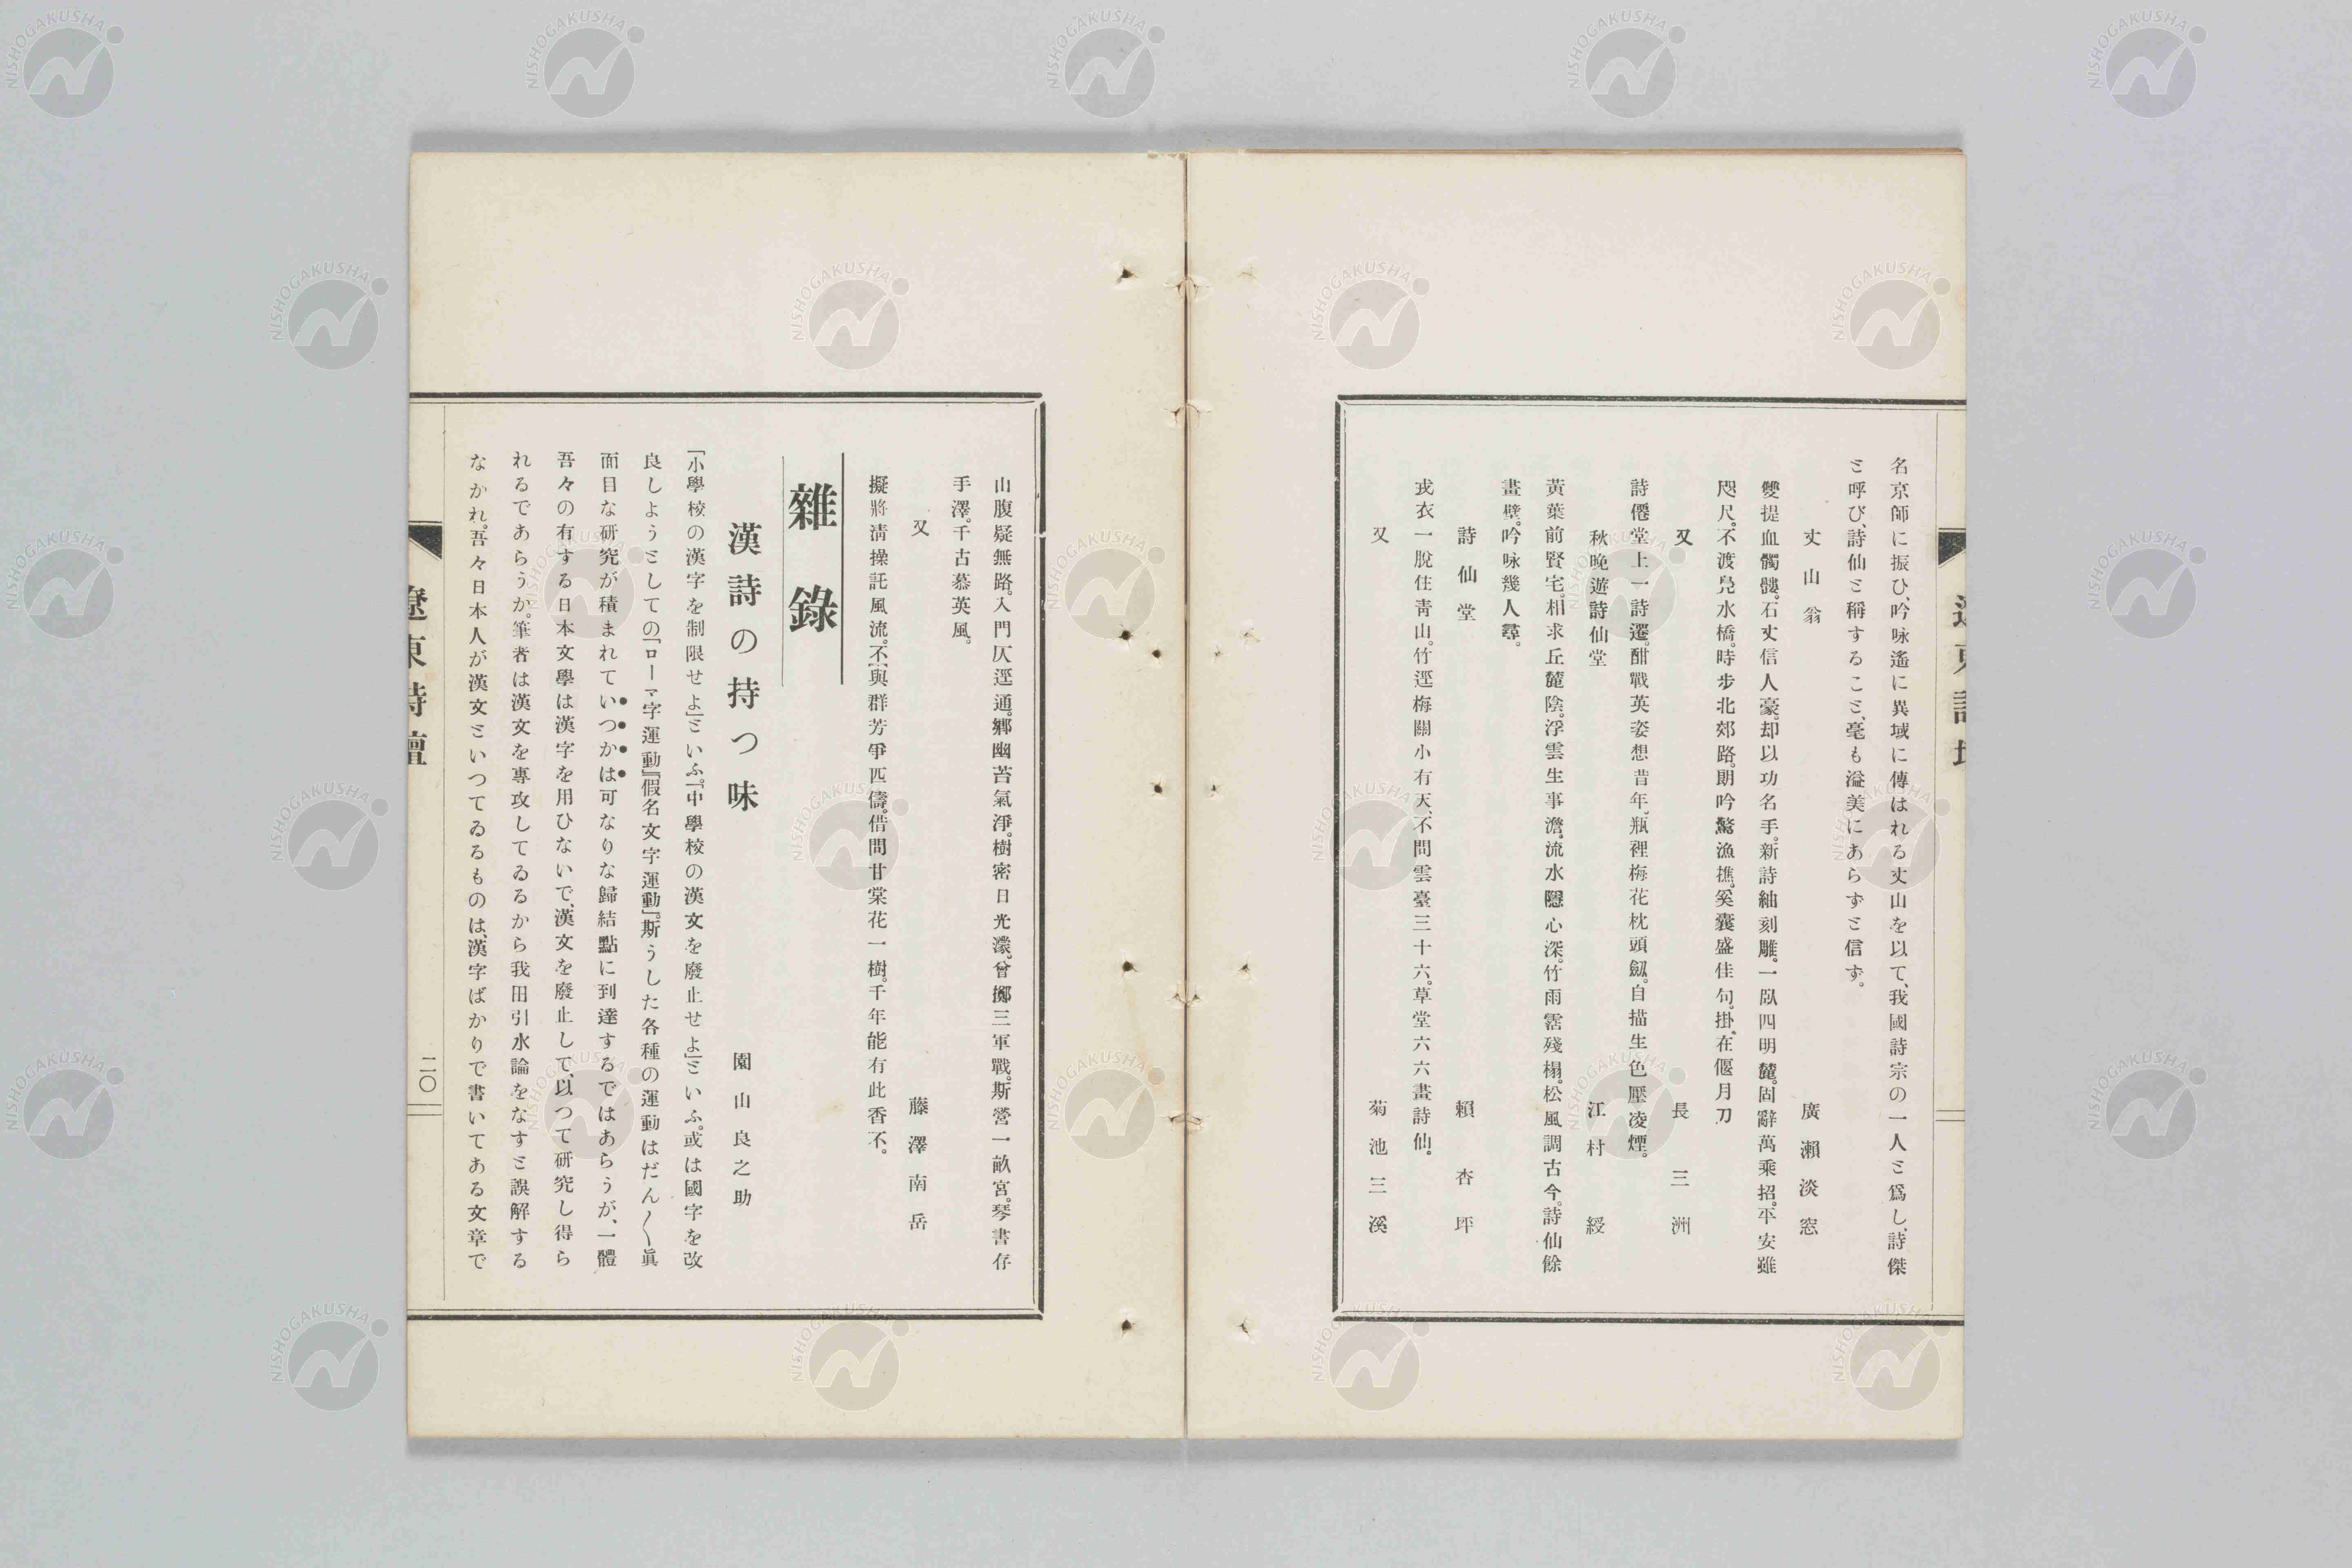 名京師に振ひ、吟咏遙に異域に傳はれる丈山を以て、我國詩宗の一人と爲し、詩傑
と呼び、詩仙と稱すること、毫も溢美にあらずと信ず。
丈山翁 廣瀨淡窓
雙提血髑髏。石丈信人豪。却以功名手。新詩紬刻雕。一臥四明麓。固辭萬乘招。平安雖
咫尺。不渡鳧水橋。時步北郊路。朗吟驚漁樵。奚囊盛佳句。掛在偃月刀
又 長三洲
詩僊堂上一詩還。酣戰英姿想昔年。瓶裡梅花枕頭劔。自描生色壓凌煙。
秋晚遊詩仙堂 江村綬
黃葉前賢宅。相求丘麓陰。浮雲生事澹。流水隱心深。竹雨霑殘榻。松風調古今。詩仙餘
畫壁。吟咏幾人尋。
詩仙堂 賴杏坪
戎衣一脫住靑山。竹逕梅關小有天。不問雲臺三十六。草堂六六畫詩仙。
又 菊池三溪
山腹疑無路。入門仄逕通。鄉幽苔氣淨。樹密日光濃。曾擲三軍戰。斯營一畝宮。琴書存
手澤。千古慕英風。
又 藤澤南岳
擬將淸操託風流。不與群芳爭匹儔。借問甘棠花一樹。千年能有此香不。
雜錄
漢詩の持つ味 園山良之助
「小學校の漢字を制限せよ」といふ。「中學校の漢文を廢止せよ」といふ。或は國字を改
良しようとしての「ローマ字運動」『假名文字運動』。斯うした各種の運動はだん〱眞
面目な硏究が積まれていつかは可なりな歸結點に到達するではあらうが、一體
吾々の有する日本文學は漢字を用ひないで、漢文を廢止して、以つて硏究し得ら
れるであらうか。筆者は漢文を專攻してゐるから我田引水論をなすと誤解する
なかれ。吾々日本人が漢文といつてゐるものは、漢字ばかりで書いてある文章で
遼東詩壇
二〇
NISHOGAKUSHA